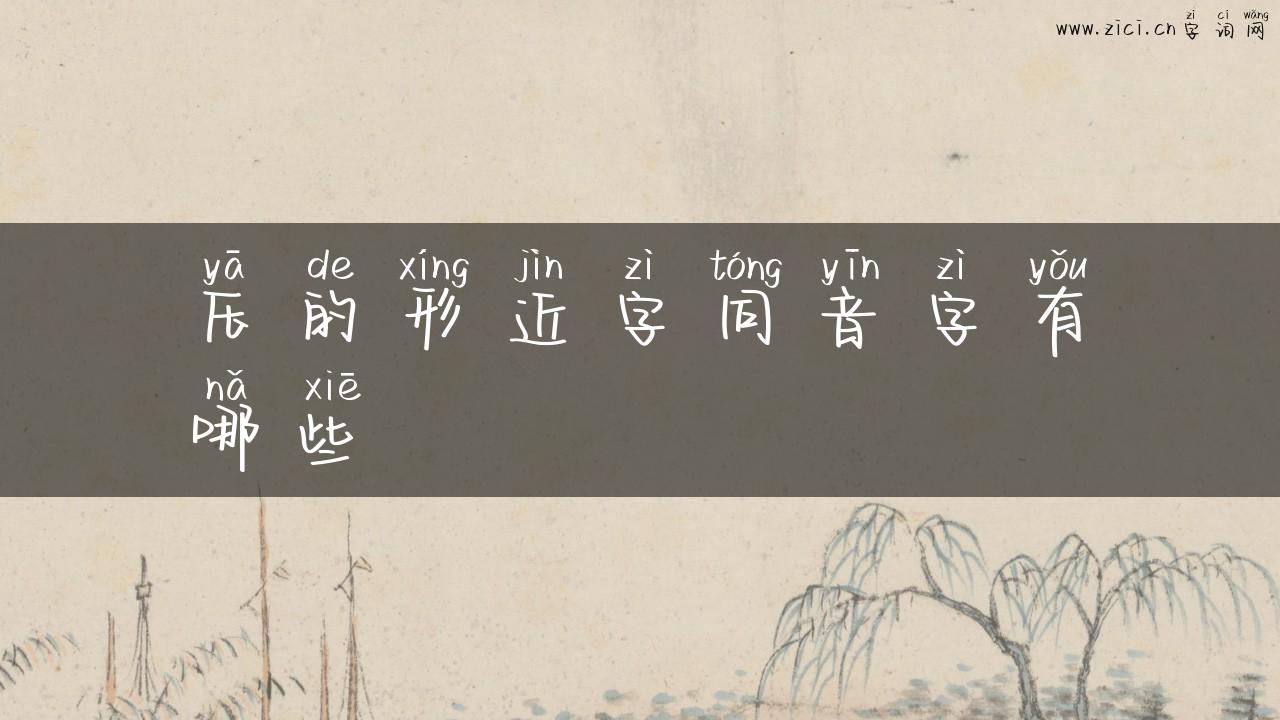 zì cí wǎng
www.zici.cn 字词网
yā de xíng jìn zì tóng yīn zì yǒu
压的形近字同音字有
nǎ xiē
哪些